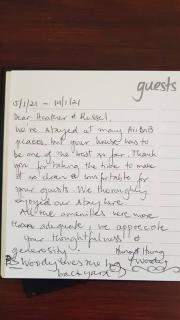 guests
15/1/21 - 19/1/21
Dear Heather & Russel,
We've stayed at many AirBnB
places, but your house has to
be one of the best so far. Thank
you for taking the time to make
it so clean & comfortable for
your guests. We thoroughly
enjoyed our stay here.
All the amenities were more
than adequate, we appreciate
your thoughtfulness &
generosity. Hung
& Woody
PS Woody loves the big
backyard